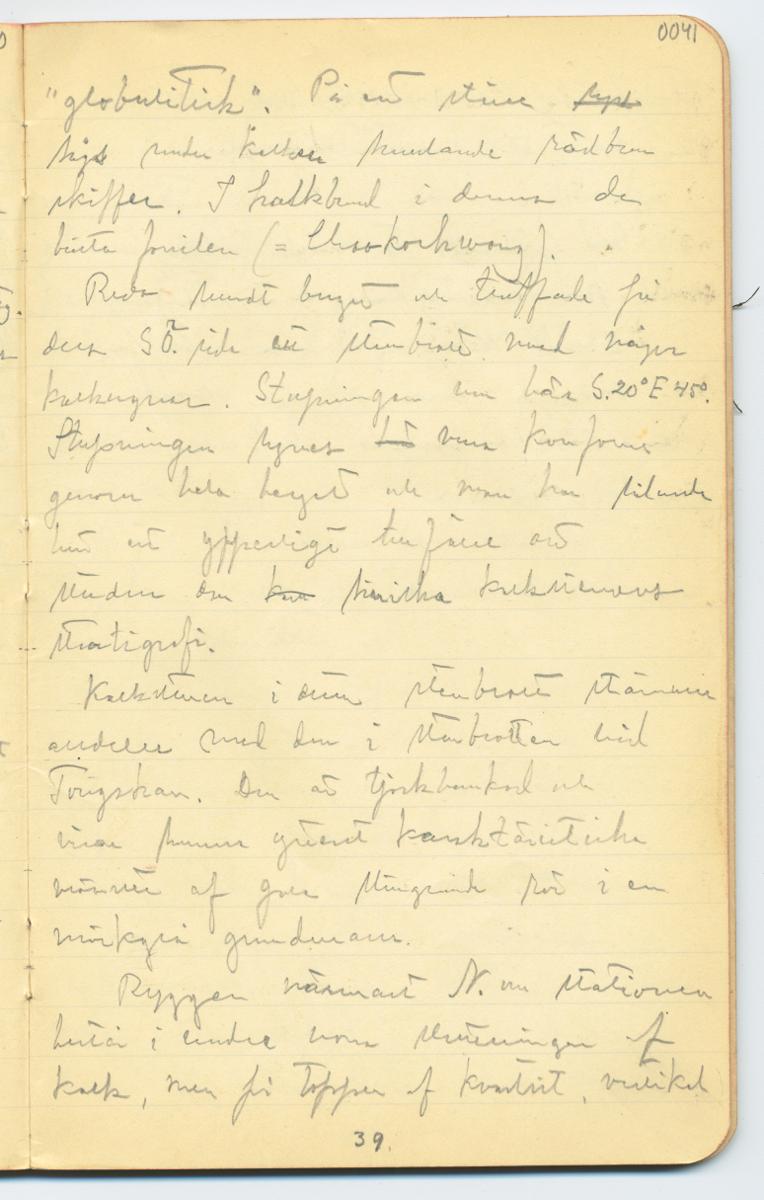 0041
"globulitisk". På ett ställe
under kalken rödbrun
skiffer. I kalkband i denna de
bästa fossilen (= Chaokorhwang).
Reds runt berget och träffade på
dess SÖ. sida ett stenbrott med några
kalkugnar. Stupningen var här S. 20° E 45°.
Stupningen synes vara konform
genom hela berget och man har
här ett ypperligt tillfälle att
studera den kalkstenens
stratigrafi.
Kalkstenen i detta stenbrott stämmer
alldeles med den i stenbrotten vid
Tongshan. Den är tjockbankad och
visar karaktäristiska
mönster af i en
mörkgrå grundmassa.
Ryggen närmast N. om stationen
består i södra sluttningen af
kalk, men på toppen af kvartsit, vertikal
39.